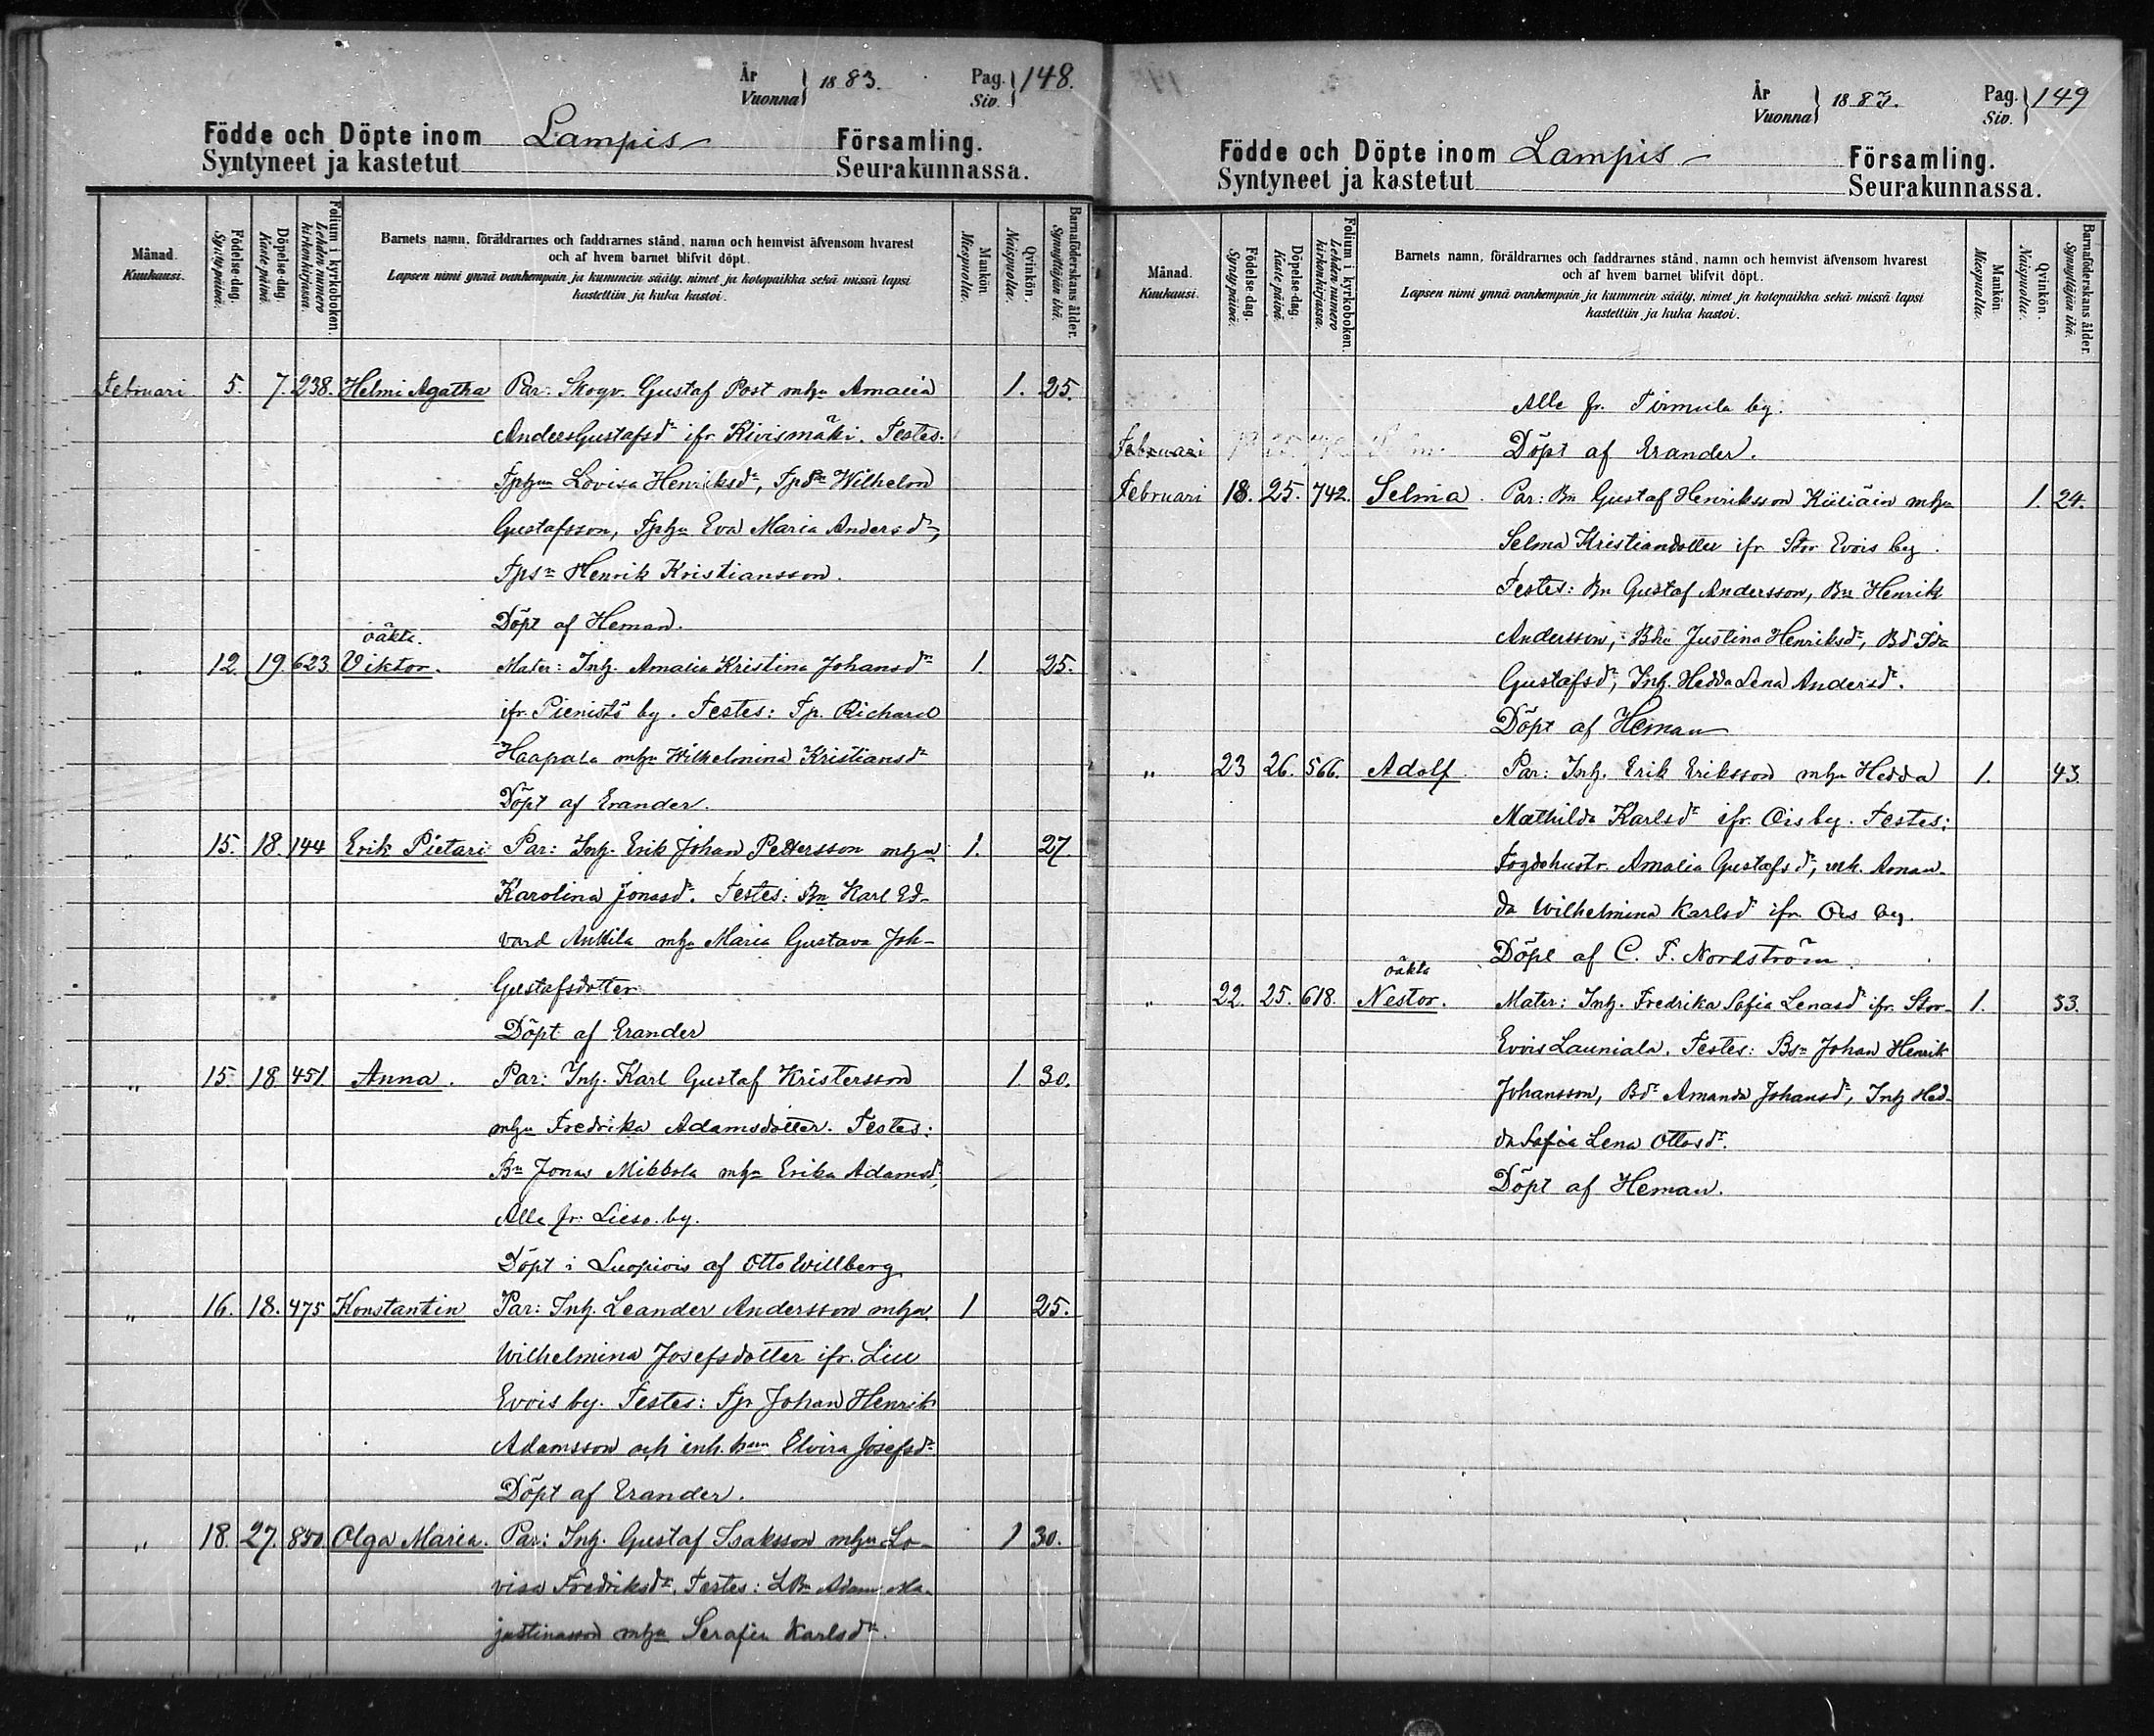 År
Vuonna } 1883. Pag.
Siv. } 148.
Födde och Döpte inom Lampis Församling.
Syntyneet ja kastetut Seurakunnassa.
Månad.
Kuukausi.
Födelse-dag.
Synty päivä.
Döpelse-dag.
Kaste päivä.
Folium i kyrkoboken.
Lehden numero
kirkonkirjassa.
Barnets namn, föräldrarnes och faddrarnes stånd, namn och hemvist äfvensom hvarest
och af hvem barnet blifvit döpt.
Lapsen nimi ynnä vanhempain ja kummein sääty, nimet ja kotopaikka sekä missä lapsi
kastettiin ja kuka kastoi.
Mankön.
Miespuolta.
Qvinkön.
Naispuolta.
Barnaföderskans ålder.
Synnyttäjän ikä.
Februari 5. 7. 238. Helmi Agatha Par: Skogv. Gustaf Post mhu Amalia 1. 25.
Anders Gustafsdr ifr. Kivismäki. Testes:
Tphu Lovisa Henriksdr, Tpsn Wilhelm
Gustafsson, Tphu Eva Maria Andersdr,
Tpsn Henrik Kristiansson.
Döpt af Heman.
oäkta.
" 12. 19. 623 Viktor. Mater: Inh. Amalia Kristina Johansdr 1. 25.
ifr. Pienistö by. Testes: Tp. Richard
Haapala mhu Wilhelmina Kristiansdr
Döpt af Erander.
" 15. 18. 144 Erik Pietari Par: Inh. Erik Johan Pettersson mhu 1. 27.
Karolina Jonasdr. Testes: Bn Karl Ed-
vard Anttila mhu Maria Gustava Joh-
Gustafsdotter
Döpt af Erander
" 15. 18 451 Anna. Par: Inh. Karl Gustaf Kristersson 1. 30.
mhu Fredrika Adamsdotter. Testes:
Bn Jonas Mikkola mhu Erika Adamsdr,
Alle fr. Lieso by.
Döpt i Luopiois af Otto Willberg
" 16. 18. 475 Konstantin Par: Inh. Leander Andersson mhu 1 25.
Wilhelmina Josefsdotter ifr. Lill
Evois by. Testes: Tp Johan Henrik
Adamsson och inh. hnn Elvira Josefsdr
Döpt af Erander.
" 18. 27. 850. Olga Maria. Par: Inh. Gustaf Isaksson mhu Lo- 1 30.
visa Fredriksdr. Testes: LBn Adam Ma-
justinasson mhu Serafia Karlsdr.
År
Vuonna } 1883. Pag.
Siv. } 149
Födde och Döpte inom Lampis Församling.
Syntyneet ja kastetut Seurakunnassa.
Månad.
Kuukausi.
Födelse-dag.
Synty päivä.
Döpelse-dag.
Kaste päivä.
Folium i kyrkoboken.
Lehden numero
kirkonkirjassa.
Barnets namn, föräldrarnes och faddrarnes stånd, namn och hemvist äfvensom hvarest
och af hvem barnet blifvit döpt.
Lapsen nimi ynnä vanhempain ja kummein sääty, nimet ja kotopaikka sekä missä lapsi
kastettiin ja kuka kastoi.
Mankön.
Miespuolta.
Qvinkön.
Naispuolta.
Barnaföderskans ålder.
Synnyttäjän ikä.
Alle fr. Tirmula by.
Februari Döpt af Erander.
Februari 18. 25. 742. Selma. Par: Bn Gustaf Henriksson mhu 1. 24.
Selma Kristiandotter ifr Stor Evois by.
Testes: Bn Gustaf Andersson, Bn Henrik
Andersson, Bhu Justina Henriksdr, Bd Ida
Gustafsdr, Inh. Hedda Lena Andersdr.
Döpt af Heman
" 23 26. 566. Adolf Par: Inh. Erik Eriksson mhu Hedda 1. 43
Mathilda Karlsdr ifr. Ois by. Testes:
Fogdehustr. Amalia Gustafsdr, och Aman-
da Wilhelmina Karlsdr ifr. Ois by.
Döpt af C. F. Nordström.
oäkta
" 22. 25. 618. Nestor. Mater: Inh. Fredrika Sofia Lenasdr ifr. Stor- 1. 33.
Evois Launiala. Testes: Bsn Johan Henrik
Johansson, Bdr Amanda Johansdr, Inh Hed-
da Sofia Lena Ottosdr.
Döpt af Heman.